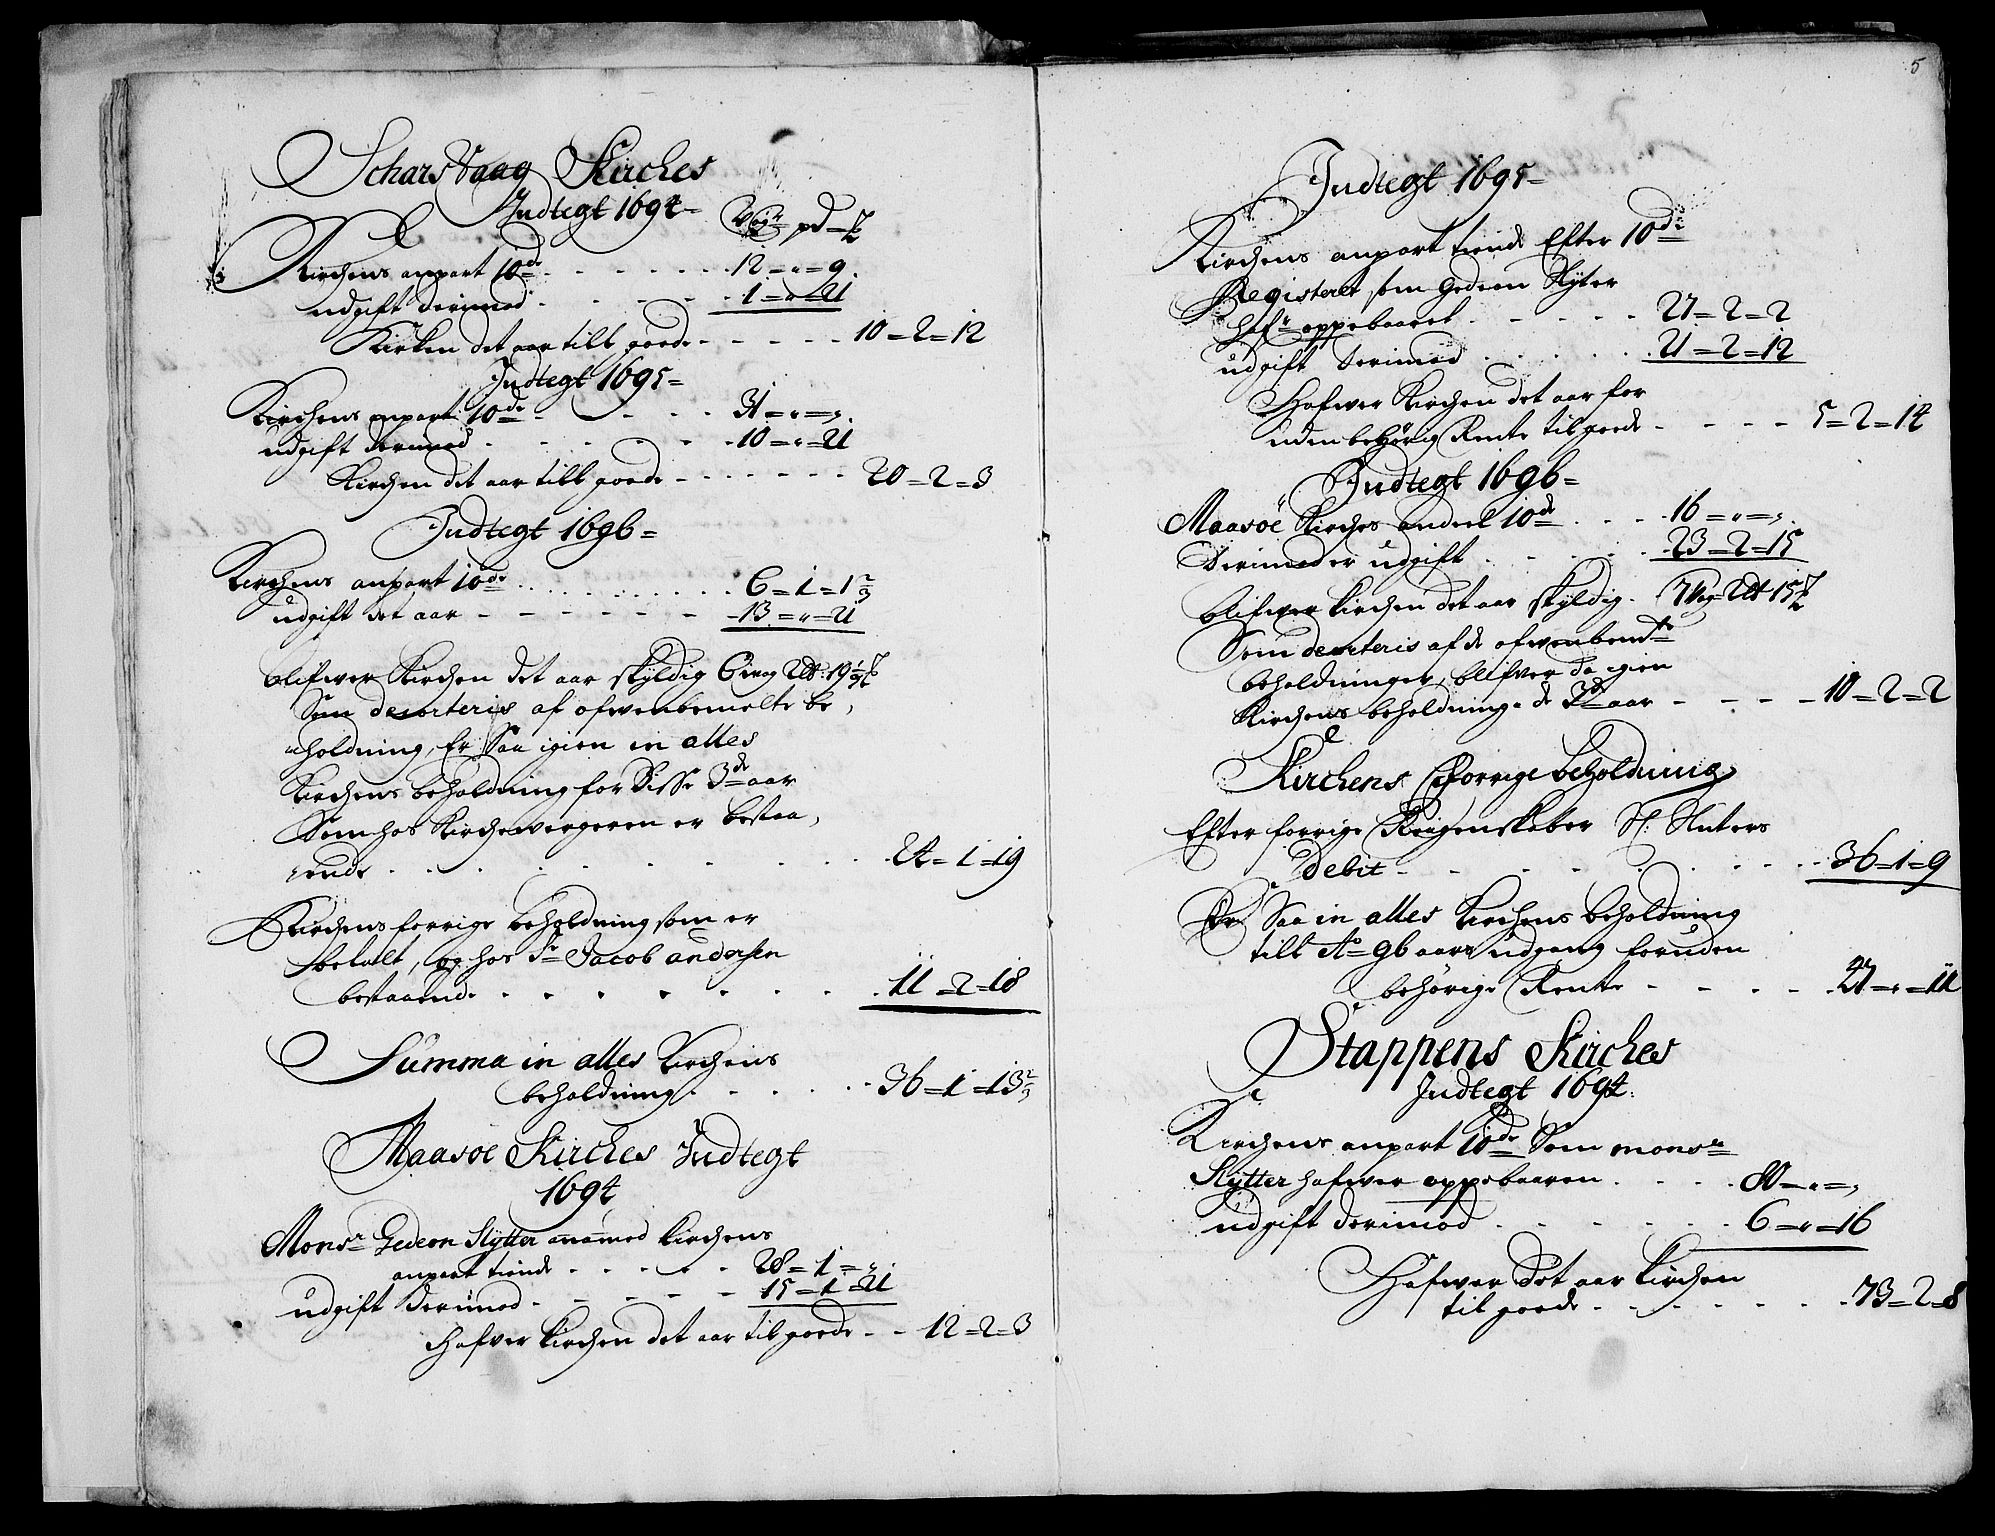 Schars Vaag Kirches
Indtegt 1694 =
Wog pd
Kirchens anpart 10de 12 = " = 9
udgift derimod 1 = " = 21
Kirken det aar till goede 10 = 2 = 12
Indtegt 1695 =
Kirchens anpart 10de 31 = " = "
udgift derimod 10 = " = 21
Kirchen det aar till goede 20 = 2 = 3
Indtegt 1696 =
Kirchens anpart 10de 6 = 1 = 1 2/3
udgift det aar 13 = " = 21
blifwer Kirchen det aar skyldig 6 wog 2 19 1/3
Som decorteris af ofwenbemelte be,
holdning, Er Saa igien in alles
Kirchens beholdning for disse 3de aar
Som hos Kirchewergeren er bestaa,
ende 24 = 1 = 19
Kirchens forrige beholdning som er
betalt, og hos Sr Jacob andersen
bestaaende 11 = 2 = 18
Summa in alles Kirchens
beholdning 36 = 1 = 13 2/3
Maasøe Kirches Indtegt
1694
Monsr Gedeon Slytter anamed Kirchens
anpart tiende 28 = 1 = "
udgift derimod 15 = 1 = 21
Hafver Kirchen det aar til goede 12 = 2 = 3
5
Indtegt 1695 =
Kirchens anpart tiende Efter 10de
Registeret som Gedeon Slyter
hafr oppebaaret 27 = 2 = 2
udgift derimod 21 = 2 = 12
Hafwer Kirchen det aar for
uden behørig Rente til goede 5 = 2 = 14
Indtegt 1696 =
Maasøe Kirches andeel 10de 16 = " = "
derimod er udgift 23 = 2 = 15
blifwer Kirchen det aar skyldig 7 Wog 2 15
Som decorteris af de ofwenbemte
beholdninger, blifver da igien
Kirchens beholdning de 3de aar 10 = 2 = 2
Kirchens forrige beholdning
Efter forrige Regenskaber Sl: Slüters
Debit 36 = 1 = 9
Er Saa in alles Kirchens beholdning
till Ao 96 aars udgang foruden
behørige Rente 47 = " = 11
Stappens Kirches
Indtegt 1694
Kirchens anpart 10de Som monsr
Slytter hafwer oppebaaren 80 = " = "
udgift derimod 6 = " = 16
Hafwer det aar Kirchen
til goede 73 = 2 = 8